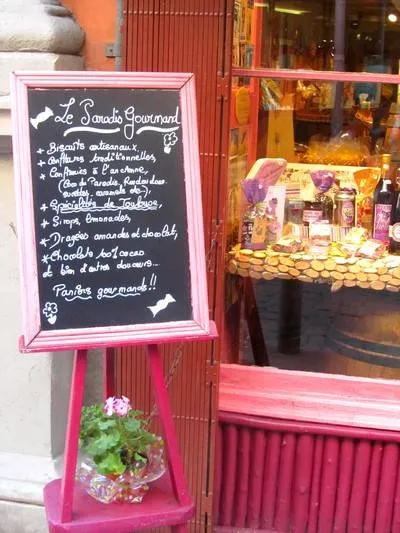 Le Paradis Gourmand
* Biscuits artisanaux,
* Confitures traditionnelles,
* Confiseries à l'ancienne,
(Bois du Paradis, Roudoudous
sucettes, caramels etc...)
* Spécialités de Toulouse,
* Sirops, limonades,
* Dragées amandes et chocolat,
* Chocolats 60% cacao
et bien d'autres douceurs...
Paniers gourmands!!